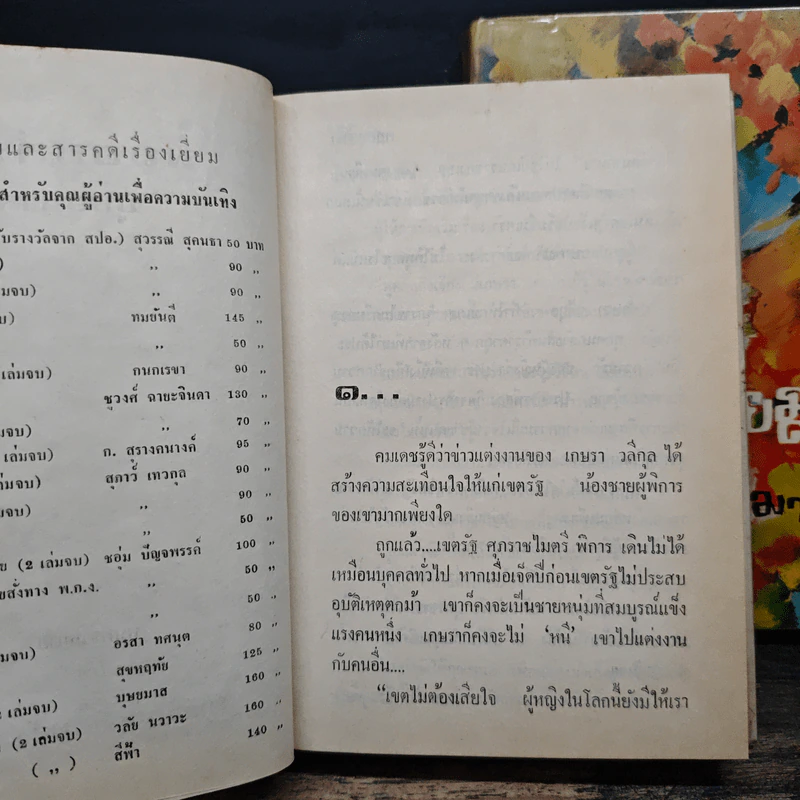 และสารคดีเรื่องเยี่ยม
สำหรับคุณผู้อ่านเพื่อความบันเทิง
รับรางวัลจาก สปอ.) สุวรรณี สุคนธา 50 บาท
) ,, 90 ,,
เล่มจบ) ,, 90 ,,
บ) ทมยันตี 145 ,,
,, 50 ,,
เล่มจบ) กนกเรขา 90 ,,
ชูวงศ์ ฉายะจินดา 130 ,,
เล่มจบ) ,, 70 ,,
เล่มจบ) ก. สุรางคนางค์ 95 ,,
เล่มจบ) สุภาว์ เทวกุล 90 ,,
,, 90 ,,
เล่มจบ) ,, 50 ,,
(2 เล่มจบ) ชอุ่ม ปัญจพรรค์ 100 ,,
สั่งทาง พ.ก.ง. ,, 50 ,,
,, 50 ,,
อรสา ทศนุต 80 ,,
เล่มจบ) สุขหฤทัย 125 ,,
บุษยมาส 160 ,,
2 เล่มจบ) วลัย นวาวะ 160 ,,
(2 เล่มจบ) สีฟ้า 140 ,,
( ,, )
๑...
คมเดชรู้ดีว่าข่าวแต่งงานของ เกษรา วลีกุล ได้
สร้างความสะเทือนใจให้แก่เขตรัฐ น้องชายผู้พิการ
ของเขามากเพียงใด
ถูกแล้ว....เขตรัฐ ศุภราชไมตรี พิการ เดินไม่ได้
เหมือนบุคคลทั่วไป หากเมื่อเจ็ดปีก่อนเขตรัฐไม่ประสบ
อุบัติเหตุตกม้า เขาก็คงจะเป็นชายหนุ่มที่สมบูรณ์แข็ง
แรงคนหนึ่ง เกษราก็คงจะไม่ 'หนี' เขาไปแต่งงาน
กับคนอื่น....
"เขตไม่ต้องเสียใจ ผู้หญิงในโลกนี้ยังมีให้เรา